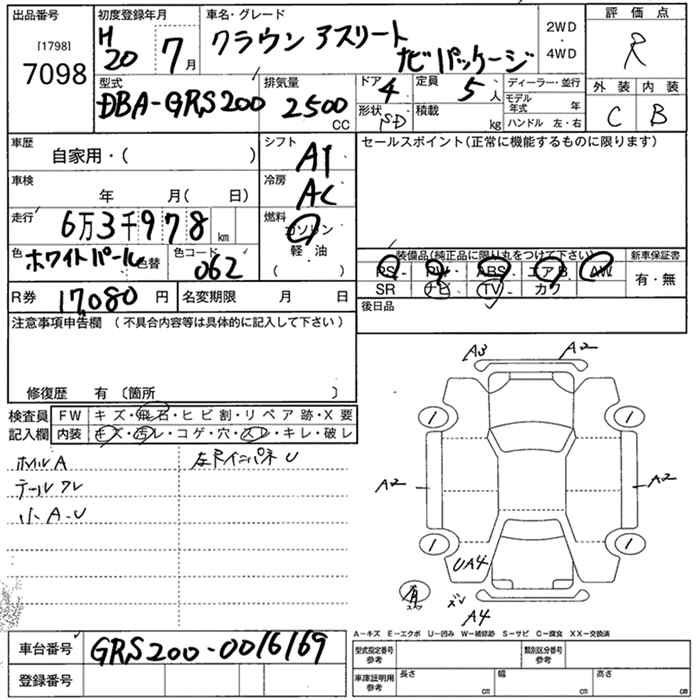 出品番号
[1798]
7098
初度登録年月
H
20
7月
車名・グレード
クラウン アスリート
ナビパッケージ
2WD
・
4WD
評価点
R
外装 内装
C B
型式
DBA-GRS200
排気量
2500
CC
ドア
4
定員
5人
形状
SD
積載
kg
ディーラー・並行
モデル
年式 年
ハンドル 左・右
車歴
自家用・( )
車検
年 月( 日)
走行
6万3千978
km
色
ホワイトパール
色替
色コード
062
シフト
AT
冷房
AC
燃料
ガソリン
軽油
( )
セールスポイント(正常に機能するものに限ります)
装備品(純正品に限り丸をつけて下さい)
PS PW ABS エアB AW
SR ナビ TV カワ
新車保証書
有・無
R券
17,080円
名変期限 月 日
後日品
注意事項申告欄 (不具合内容等は具体的に記入して下さい)
修復歴 有 (箇所 )
検査員
記入欄
FW キズ・飛石・ヒビ割・リペア跡・X要
内装 キズ・汚レ・コゲ・穴・スレ・キレ・破レ
ホイルA
テールワレ
小A-U
A3 A2
1 1
A2 A2
1 1
UA4
有
ズレ
A4
A-キズ E-エクボ U-凹み W-補修跡 S-サビ C-腐食 XX-交換済
車台番号
GRS200-0016169
登録番号
型式指定番号
参考
類別区分番号
参考
車庫証明用
参考
長さ
cm
幅
cm
高さ
cm